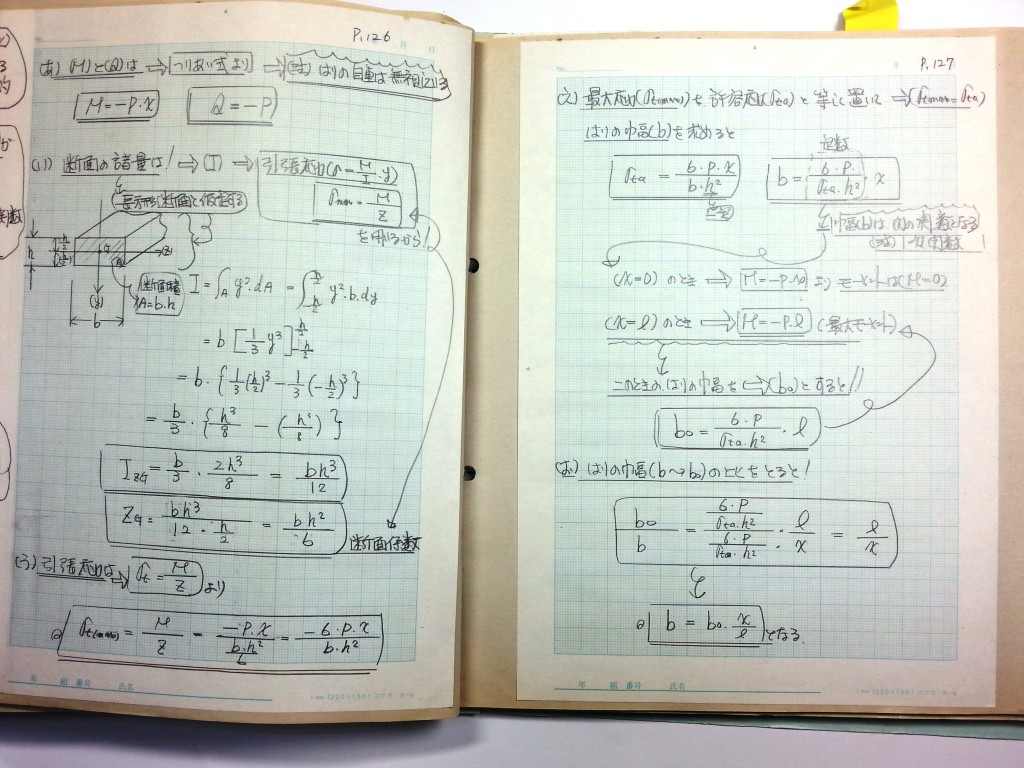 P.126
(あ) (M)と(Q)は → つりあい式より → (注) はりの自重は無視している
M=-P・x Q=-P
(い) 断面の諸量は! → (I) → 引張応力(σ=M/I・y)
長方形断面と仮定する
σmax=M/Z
を用いるから!
h
h/2
G
(Z)
(y)
b
断面積
A=b・h
I=∫A y²・dA = ∫-h/2 h/2 y²・b・dy
= b [1/3 y³]-h/2 h/2
= b・{1/3(h/2)³-1/3(-h/2)³}
= b/3・{h³/8 - (-h³/8)}
IZG = b/3・2h³/8 = bh³/12
ZG = bh³/12・h/2 = bh²/6
断面係数
(う) 引張応力は → σt=M/Z より
σt(max) = M/Z = -P・x/b・h²/6 = -6・P・x/b・h²
年 組 番号 氏名
P.127
(え) 最大応力(σt(max))を許容応力(σta)と等しく置いて → (σtmax=σta)
はりの巾高(b)を求めると
定数
σta = 6・P・x/b・h² b = 6・P/σta・h²・x
巾高(b)は(x)の関数となる
(注) 一次関数!
(x=0) のとき → M=-P・0 より モーメントは(M=0)
(x=l) のとき → M=-P・l (最大モーメント)
このときのはりの巾高を → (b0)とすると!!
b0 = 6・P/σta・h²・l
(お) はりの巾高(b〜b0)の比をとると!
b0/b = 6・P/σta・h² / 6・P/σta・h²・l/x = l/x
b = b0・x/l となる
年 組 番号 氏名